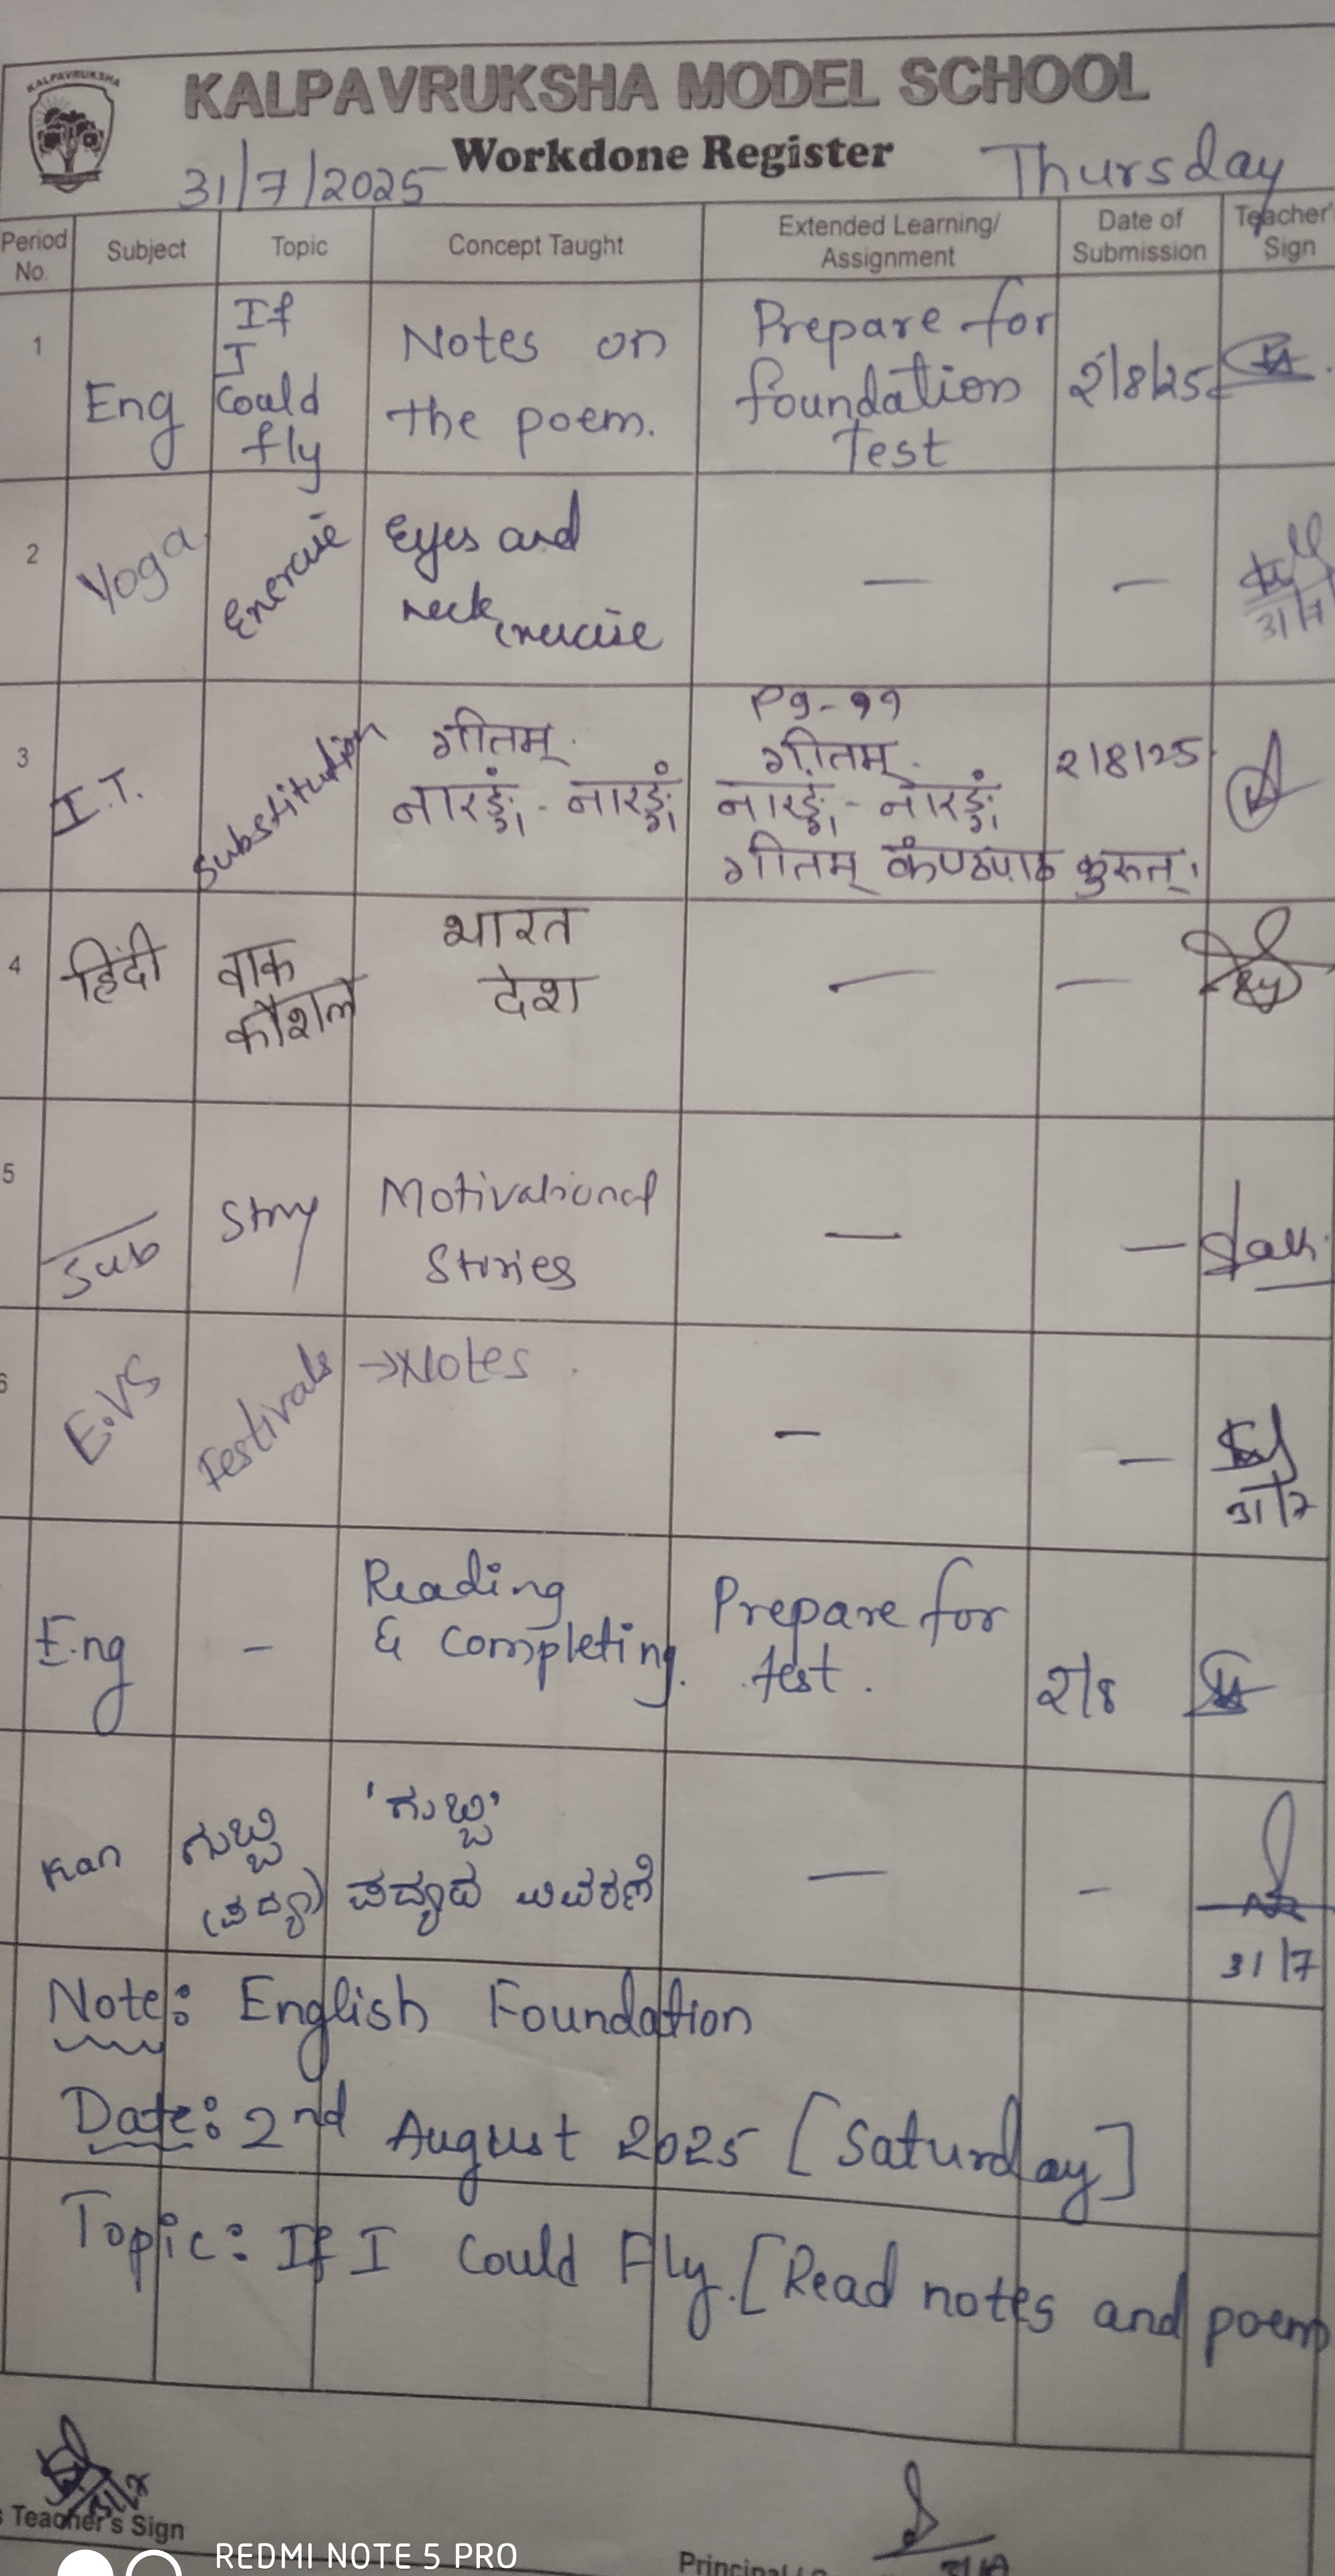 KALPAVRUKSHA
KALPAVRUKSHA MODEL SCHOOL
Workdone Register
31/7/2025 Thursday
Period No. Subject Topic Concept Taught Extended Learning/ Assignment Date of Submission Teacher' Sign
1 Eng If I Could fly Notes on the poem. Prepare for foundation Test 2/8/25
2 Yoga Exercise Eyes and neck exercise — —
31/7
3 I.T. Substitution गीतम् Pg-११ 2/8/25
नारङ्गं - नारङ्गं गीतम्
नारङ्गं - नारङ्गं
गीतम् कंण्ठपाठ कुरुत।
4 हिंदी वाक कौशल भारत देश — —
5 Sub Story Motivational Stories — —
6 E.VS Festivals →Notes — —
31/7
Eng - Reading & Completing. Prepare for test. 2/8
Kan ಗುಬ್ಬಿ (ಪದ್ಯ) 'ಗುಬ್ಬಿ' ಪದ್ಯದ ವಿವರಣೆ — -
31/7
Note: English Foundation
Date: 2nd August 2025 [Saturday]
Topic: If I Could Fly. [Read notes and poem
Teacher's Sign
Principal
REDMI NOTE 5 PRO